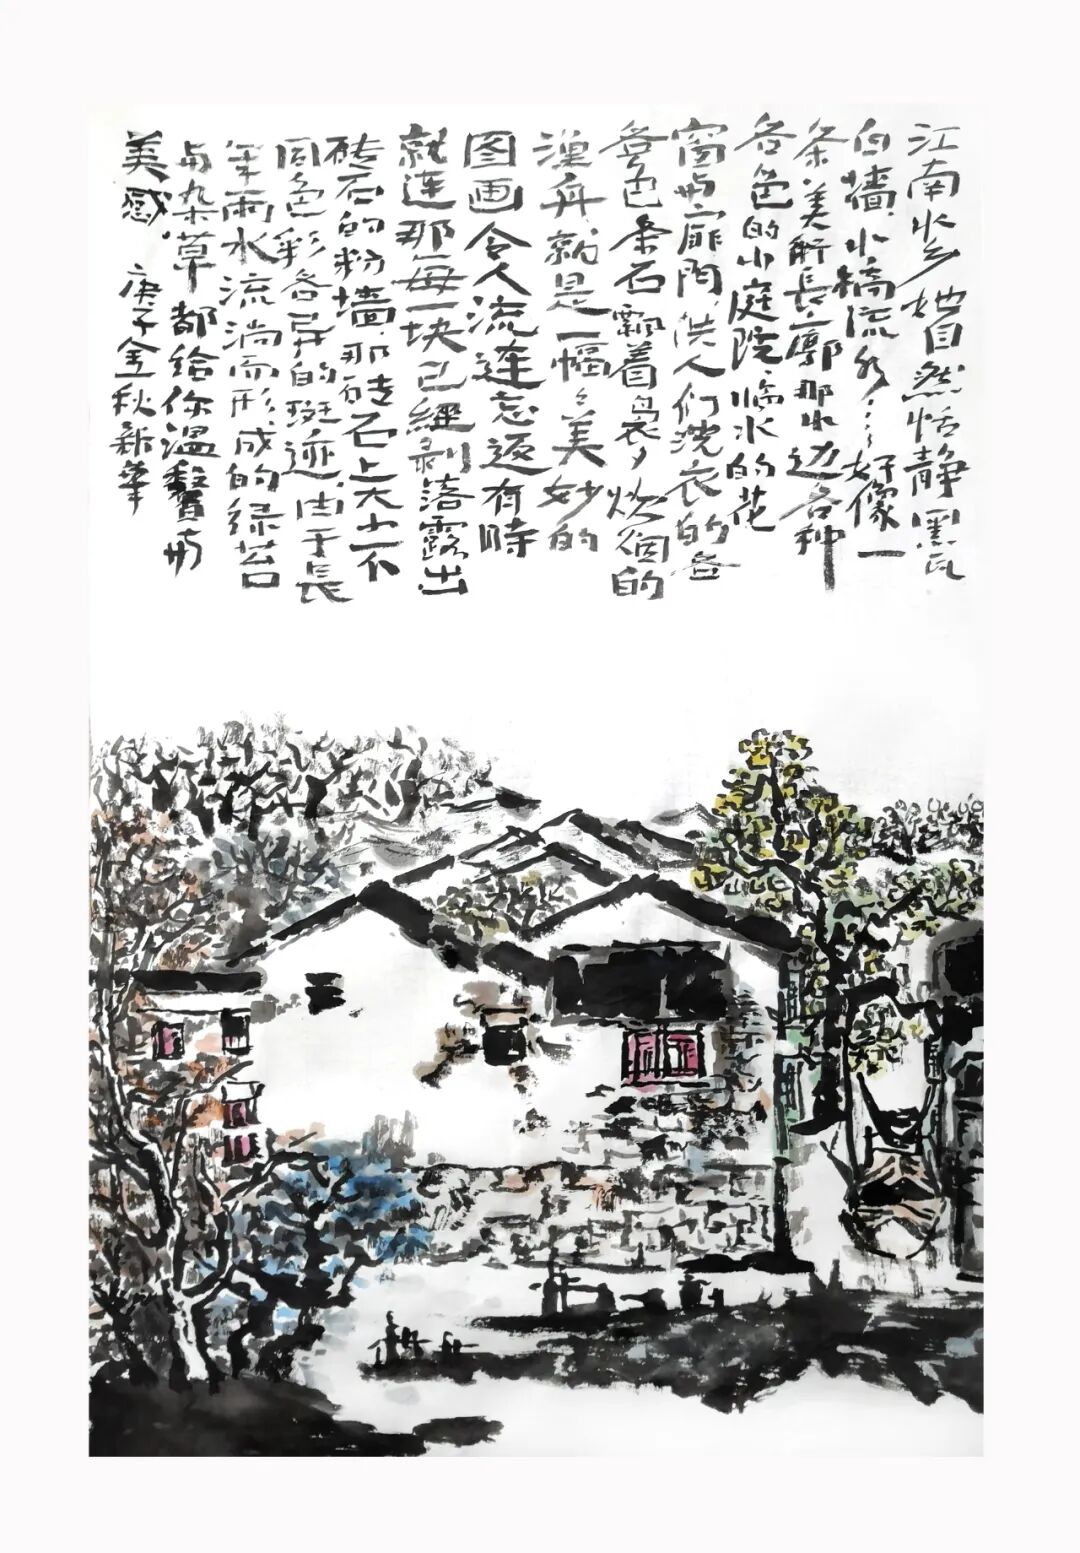 江南水乡她自然恬静黑瓦
白墙小桥流水……好像一
条美丽长廊那水边各种
各色的小庭院临水的花
窗与扉门供人们浣衣的各
色条石飘着袅々炊烟的
渔舟就是一幅々美妙的
图画令人流连忘返有時
就连那每一块已經剥落露出
砖石的粉墙那砖石上大小不
同色彩各异的斑迹由于長
年雨水流淌而形成的绿苔
与杂草都给你温馨与
美感
庚子金秋新华